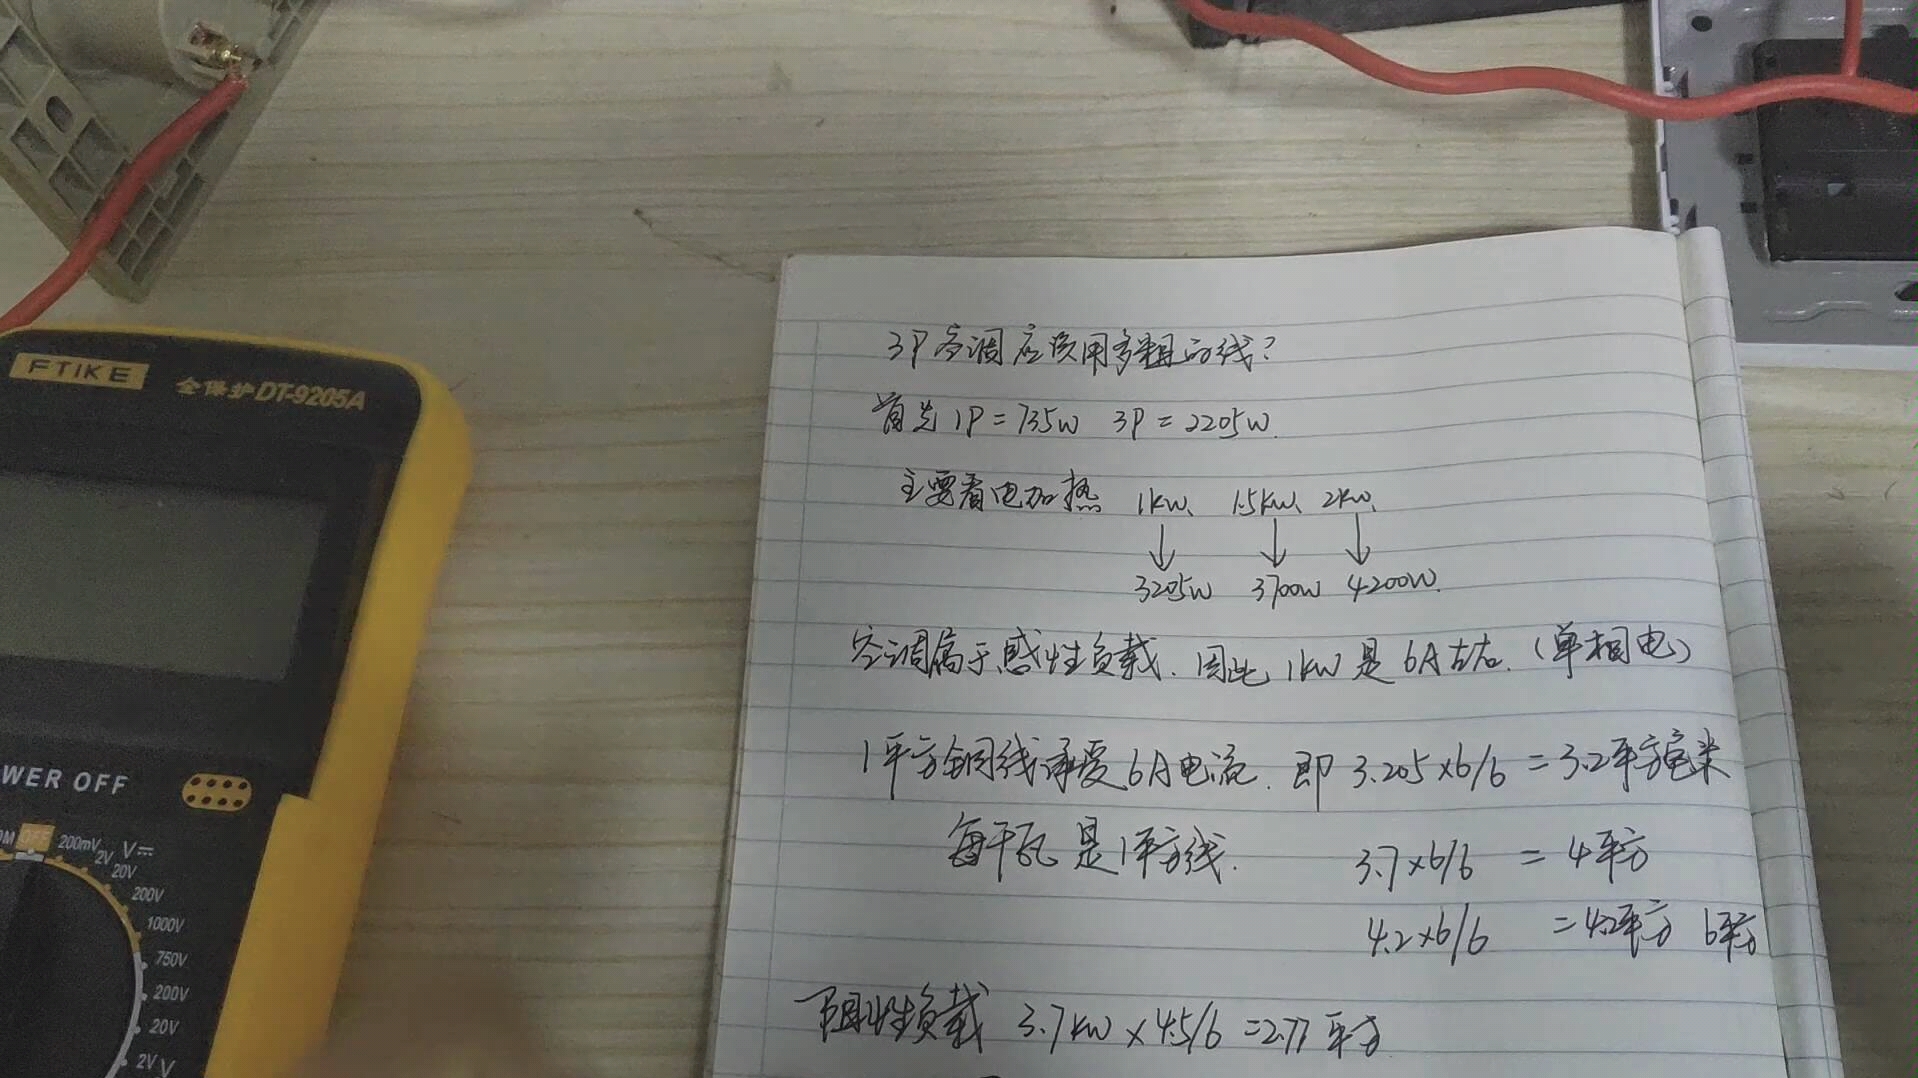 FTIKE
全保护DT-9205A
WER OFF
OFF
200mV
V
2V
20V
200V
1000V
750V
200V
20V
2V
V
3P空调应该用多粗的线?
首先1P=735W 3P=2205W.
主要看电加热 1KW、 1.5KW、 2KW、
3205W 3700W 4200W.
空调属于感性负载.因此1KW是6A左右.(单相电)
1平方铜线承受6A电流.即 3.205×6/6 = 3.2平方毫米
每千瓦是1平方线. 3.7×6/6 = 4平方
4.2×6/6 = 4.2平方 6平方
阻性负载 3.7KW×4.5/6=2.77平方